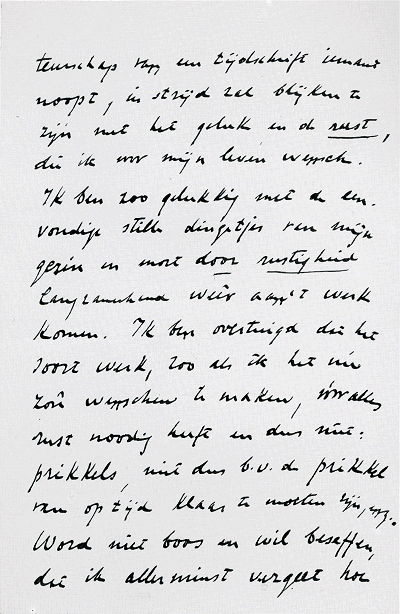 teurschap van een tijdschrift iemand
noopt, in strijd zal blijken te
zijn met het geluk en de rust,
die ik voor mijn leven wensch.
Ik ben zoo gelukkig met de een-
voudige stille dingetjes van mijn
gezin en moet door rustigheid
langzamerhand weêr aan 't werk
komen. Ik ben overtuigd dat het
soort werk, zoo als ik het nu
zoû wenschen te maken, vóór alles
rust noodig heeft en dus niet:
prikkels, niet dus b.v. de prikkel
van op tijd klaar te moeten zijn, enz.
Word niet boos en wil beseffen,
dat ik allerminst vergeet hoe